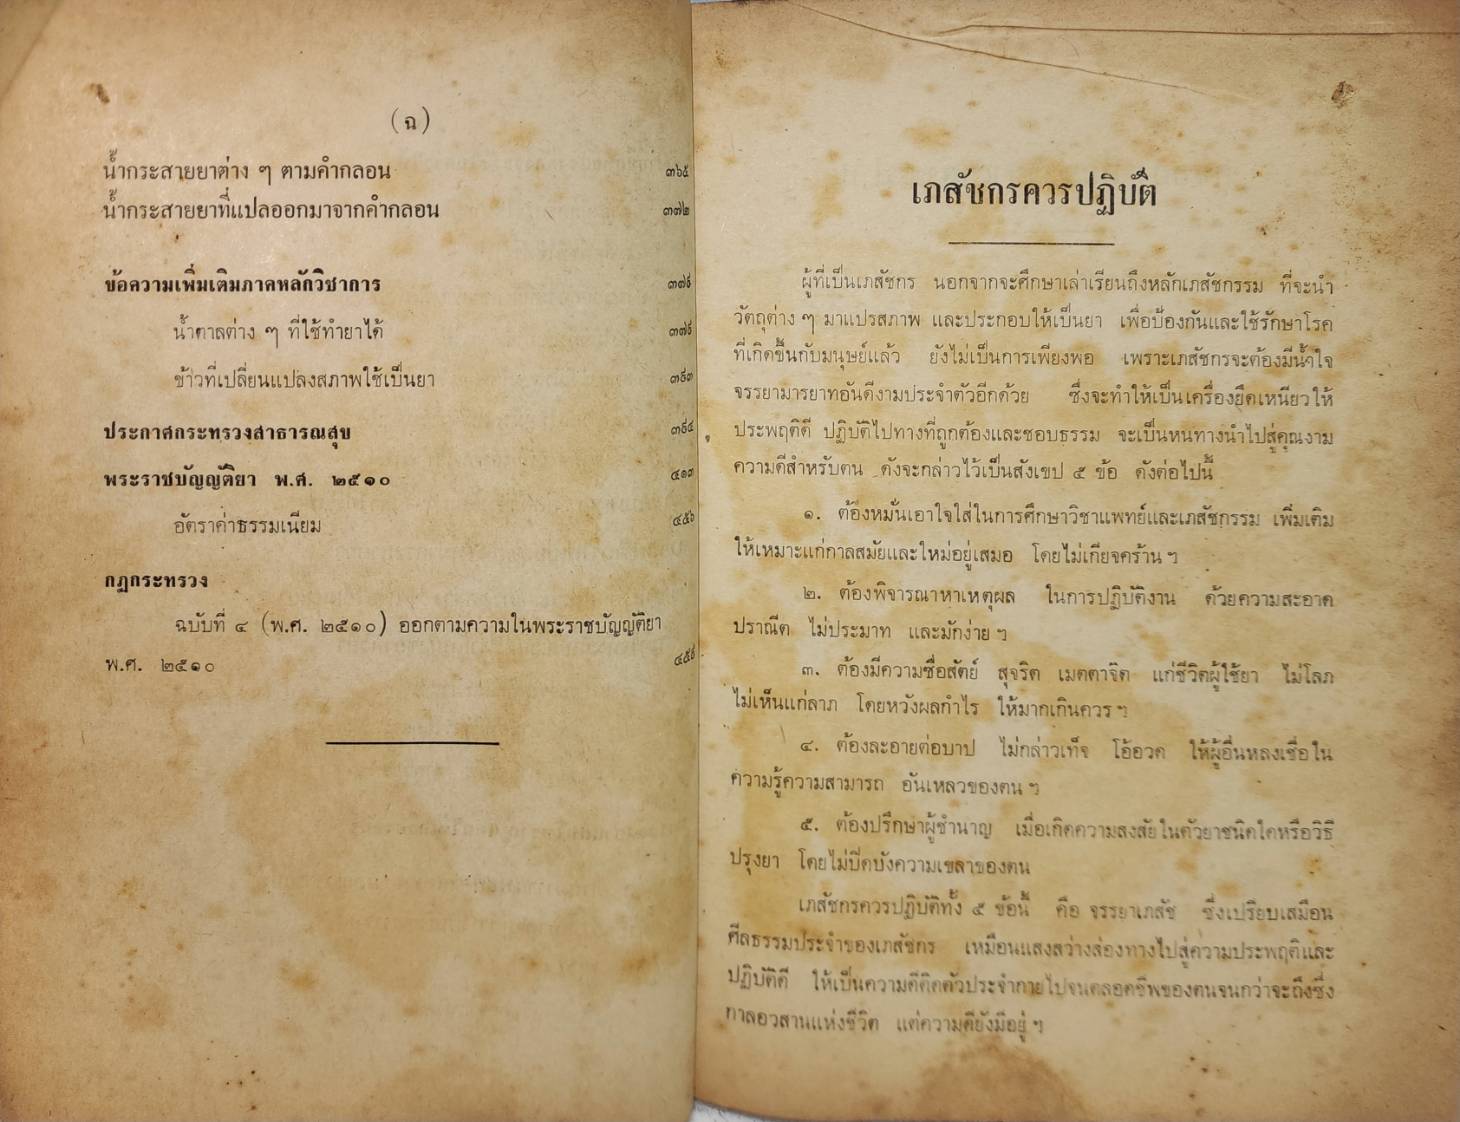 (ฉ)
น้ำกระสายยาต่าง ๆ ตามคำกลอน ๓๖๕
น้ำกระสายยาที่แปลออกมาจากคำกลอน ๓๗๒
ข้อความเพิ่มเติมภาคหลักวิชาการ ๓๗๙
น้ำตาลต่าง ๆ ที่ใช้ทำยาได้ ๓๗๙
ข้าวที่เปลี่ยนแปลงสภาพใช้เป็นยา ๓๘๓
ประกาศกระทรวงสาธารณสุข ๓๘๔
พระราชบัญญัติยา พ.ศ. ๒๕๑๐ ๔๑๓
อัตราค่าธรรมเนียม ๔๕๖
กฎกระทรวง
ฉบับที่ ๔ (พ.ศ. ๒๕๑๐) ออกตามความในพระราชบัญญัติยา
พ.ศ. ๒๕๑๐ ๔๕๙
เภสัชกรควรปฏิบัติ
ผู้ที่เป็นเภสัชกร นอกจากจะศึกษาเล่าเรียนถึงหลักเภสัชกรรม ที่จะนำ
วัตถุต่าง ๆ มาแปรสภาพ และประกอบให้เป็นยา เพื่อป้องกันและใช้รักษาโรค
ที่เกิดขึ้นกับมนุษย์แล้ว ยังไม่เป็นการเพียงพอ เพราะเภสัชกรจะต้องมีน้ำใจ
จรรยามารยาทอันดีงามประจำตัวอีกด้วย ซึ่งจะทำให้เป็นเครื่องยึดเหนียวให้
ประพฤติดี ปฏิบัติไปทางที่ถูกต้องและชอบธรรม จะเป็นหนทางนำไปสู่คุณงาม
ความดีสำหรับตน ดังจะกล่าวไว้เป็นสังเขป ๕ ข้อ ดังต่อไปนี้
๑. ต้องหมั่นเอาใจใส่ในการศึกษาวิชาแพทย์และเภสัชกรรม เพิ่มเติม
ให้เหมาะแก่กาลสมัยและใหม่อยู่เสมอ โดยไม่เกียจคร้าน ฯ
๒. ต้องพิจารณาหาเหตุผล ในการปฏิบัติงาน ด้วยความสะอาด
ปราณีต ไม่ประมาท และมักง่าย ฯ
๓. ต้องมีความซื่อสัตย์ สุจริต เมตตาจิต แก่ชีวิตผู้ใช้ยา ไม่โลภ
ไม่เห็นแก่ลาภ โดยหวังผลกำไร ให้มากเกินควร ฯ
๔. ต้องละอายต่อบาป ไม่กล่าวเท็จ โอ้อวด ให้ผู้อื่นหลงเชื่อใน
ความรู้ความสามารถ อันเหลวของตน ฯ
๕. ต้องปรึกษาผู้ชำนาญ เมื่อเกิดความสงสัยในตัวยาชนิดใดหรือวิธี
ปรุงยา โดยไม่ปิดบังความเขลาของตน
เภสัชกรควรปฏิบัติทั้ง ๕ ข้อนี้ คือ จรรยาเภสัช ซึ่งเปรียบเสมือน
ศีลธรรมประจำของเภสัชกร เหมือนแสงสว่างส่องทางไปสู่ความประพฤติและ
ปฏิบัติดี ให้เป็นความดีติดตัวประจำกายไปจนตลอดชีพของตนจนกว่าจะถึงซึ่ง
กาลอวสานแห่งชีวิต แต่ความดียังมีอยู่ ฯ